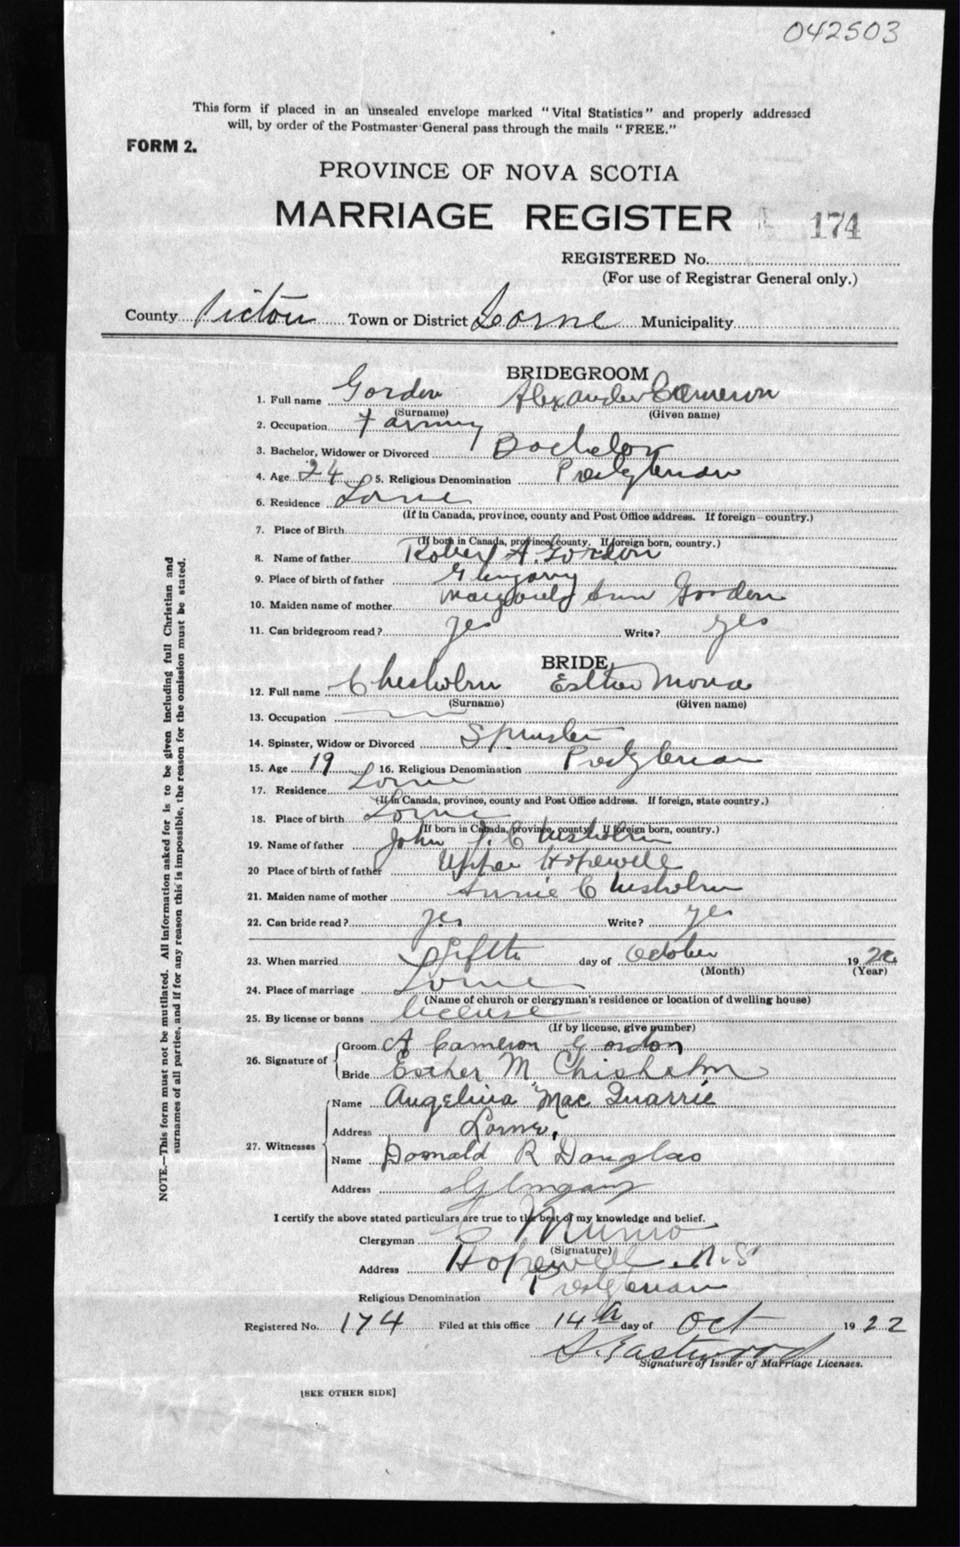 042503
This form if placed in an unsealed envelope marked "Vital Statistics" and properly addressed
will, by order of the Postmaster General pass through the mails "FREE."
FORM 2.
PROVINCE OF NOVA SCOTIA
MARRIAGE REGISTER
174
REGISTERED No.
(For use of Registrar General only.)
County Pictou Town or District Lorne Municipality
BRIDEGROOM
1. Full name Gordon Alexander Cameron
(Surname) (Given name)
2. Occupation Farming
3. Bachelor, Widower or Divorced Bachelor
4. Age 24 5. Religious Denomination Presbyterian
6. Residence Lorne
(If in Canada, province, county and Post Office address. If foreign country.)
7. Place of Birth
(If born in Canada, province, county. If foreign born, country.)
8. Name of father Robert A. Gordon
9. Place of birth of father Glengarry
10. Maiden name of mother Ann Gordon
11. Can bridegroom read? yes Write? yes
BRIDE
12. Full name Chisholm Esther Mona
(Surname) (Given name)
13. Occupation
14. Spinster, Widow or Divorced Spinster
15. Age 19 16. Religious Denomination Presbyterian
17. Residence Lorne
(If in Canada, province, county and Post Office address. If foreign, state country.)
18. Place of birth Lorne
(If born in Canada, province, county. If foreign born, country.)
19. Name of father John Chisholm
20 Place of birth of father Upper Hopewell
21. Maiden name of mother Annie Chisholm
22. Can bride read? yes Write? yes
23. When married day of October 19
(Month) (Year)
24. Place of marriage Lorne
(Name of church or clergyman's residence or location of dwelling house)
25. By license or banns license
(If by license, give number)
26. Signature of Groom A Cameron Gordon
Bride Esther M Chisholm
27. Witnesses Name Angelina MacQuarrie
Address Lorne,
Name Donald R Douglas
Address Glengarry
I certify the above stated particulars are true to the best of my knowledge and belief.
Clergyman Munro
(Signature)
Address Hopewell N.S
Religious Denomination Presbyterian
Registered No. 174 Filed at this office 14th day of Oct 1922
S. Eastwood
Signature of Issuer of Marriage Licenses.
[SEE OTHER SIDE]
NOTE.—This form must not be mutilated. All information asked for is to be given including full Christian and
surnames of all parties, and if for any reason this is impossible, the reason for the omission must be stated.